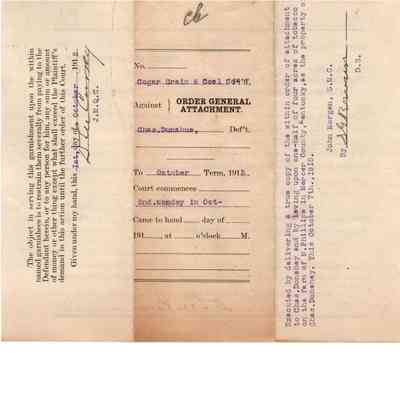 (The object in serving this garnishment upon the within
named garnishees is to restrain them severally from paying to the
Defendant herein, or to any person for him, any sum or amount
of money or other thing except what shall exceed the Plaintiff's
demand in this action until the further order of this Court.
Given under my hand, this 1st, day October 1912.
J.M.Q.C.
cb
No.
Cogar Grain & Coal Co Pl'ff,
Against
ORDER GENERAL
ATTACHMENT.
Chas. Donahue, Def't.
To October Term, 1912.
Court commences
2nd. Monday in Oct-
Came to hand day of
191 , at o'clock M.
Executed by delivering a true copy of the within order of attachment
to Chas. Dunahay and by levying upon one-half of four acres of tobacco
on the farm of M Phillips in Mercer County, Kentucky, as the property of
Chas. Dunahay. This October 7th., 1912.
John Morgan, S.M.C.
By
D.S.